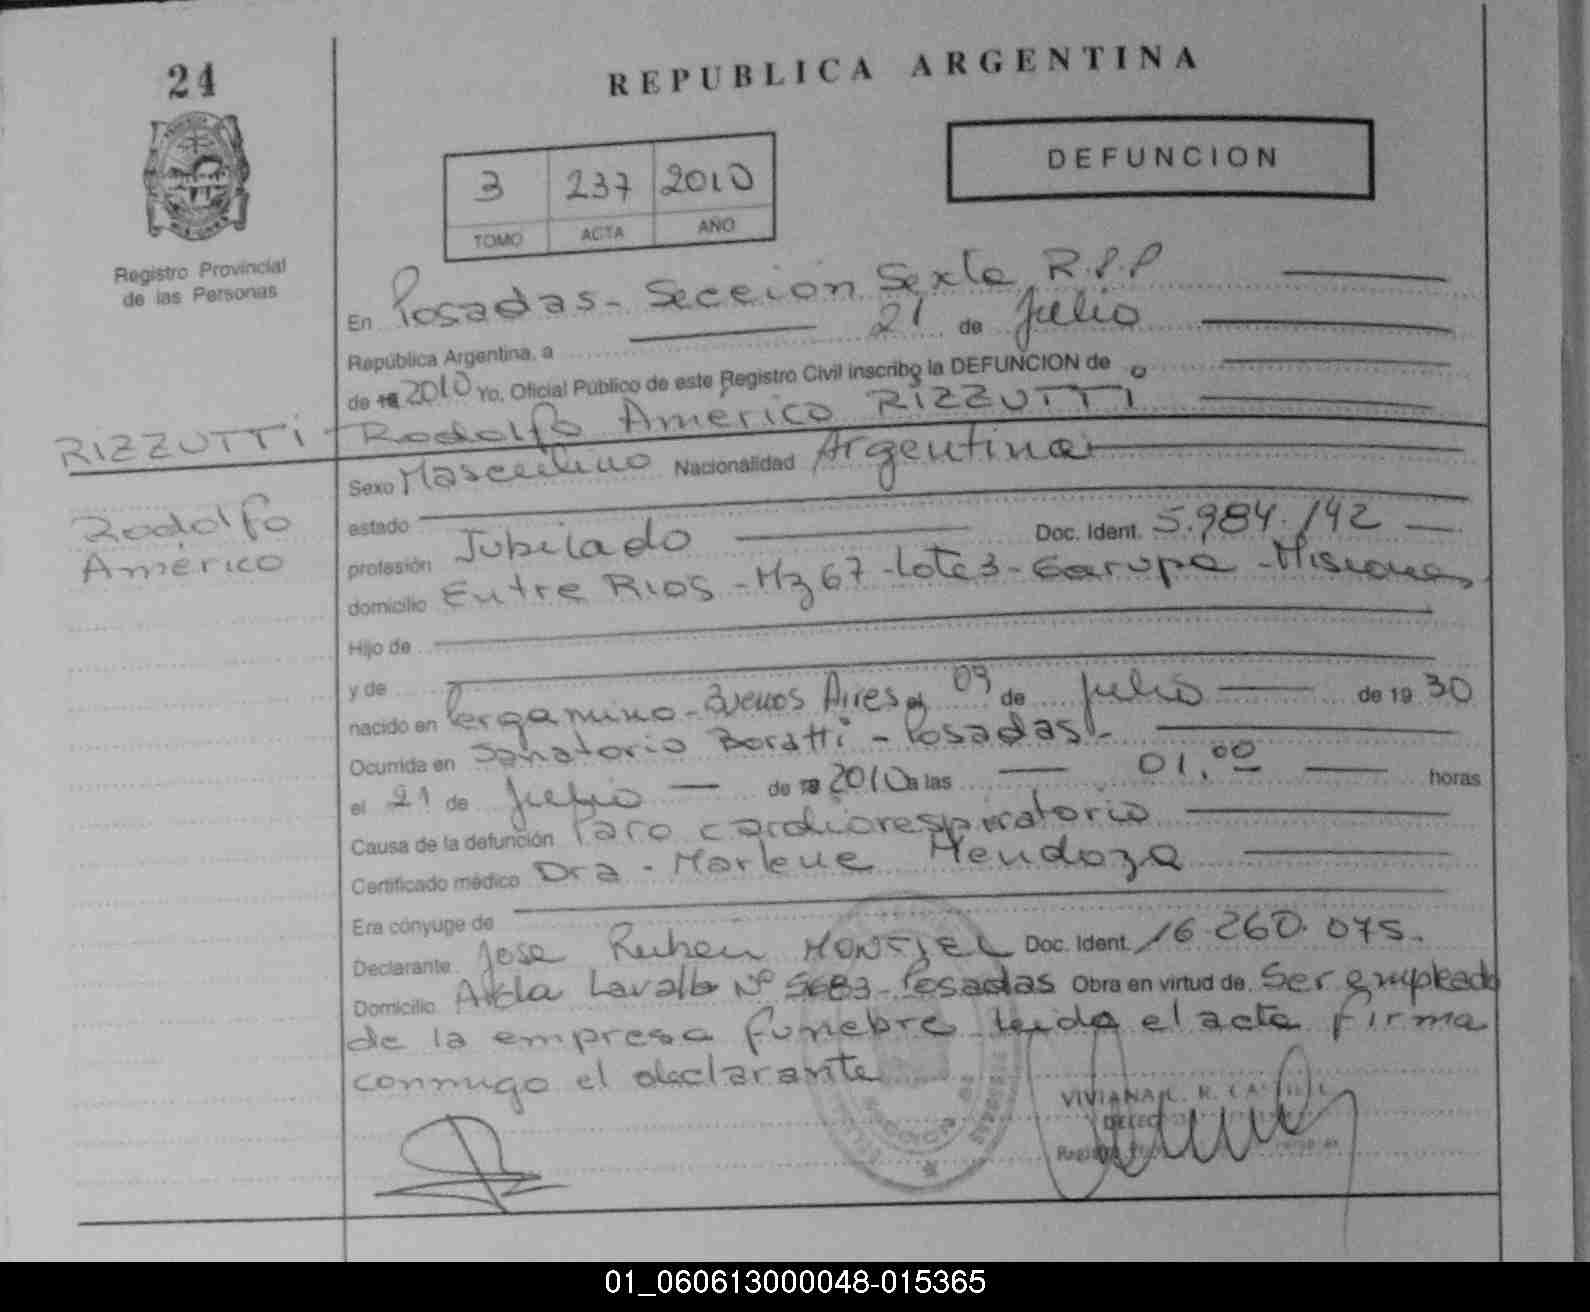 24
REPUBLICA ARGENTINA
DEFUNCION
3 237 2010
TOMO ACTA AÑO
Registro Provincial
de las Personas
En Posadas - Sección Sexta R.P.P
República Argentina, a 21 de Julio
de 19 2010 Yo, Oficial Público de este Registro Civil inscribo la DEFUNCION de
RIZZUTTI
Rodolfo Américo
Rodolfo Américo RIZZUTTI
Sexo Masculino Nacionalidad Argentina
estado
profesión Jubilado Doc. Ident. 5.984.142
domicilio Entre Rios - Mz 67 - Lote 3 - Garupa - Misiones
Hijo de
y de
nacido en Pergamino - Buenos Aires el 09 de Julio de 19 30
Ocurrida en Sanatorio Boratti - Posadas -
el 21 de Julio de 19 2010 a las 01,00 horas
Causa de la defunción Paro cardiorespiratorio
Certificado médico Dra - Marlene Mendoza
Era cónyuge de
Declarante Jose Ruben Doc. Ident. 16.260.075.
Domicilio Avda Lavalle Nº 5683 - Posadas Obra en virtud de Ser empleado
de la empresa funebre leida el acta firma
conmigo el declarante
VIVIANA
01_060613000048-015365